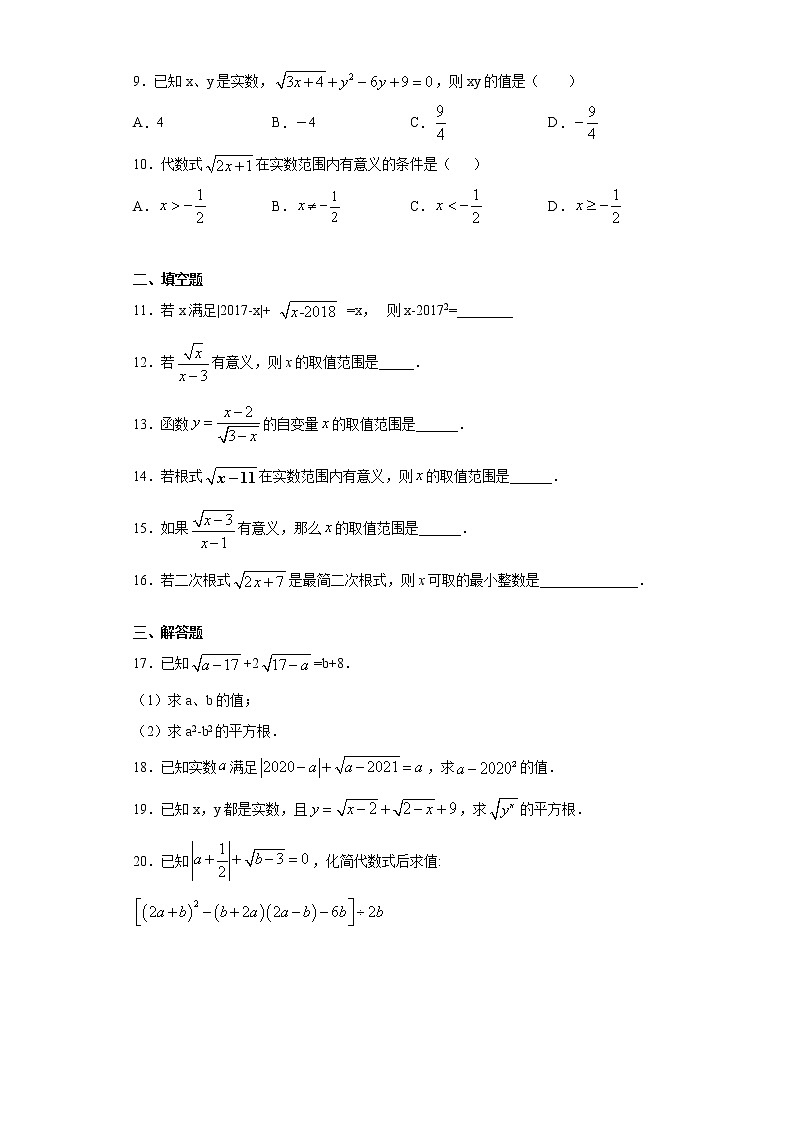 9．已知 x、y 是实数，√(3x+4)+y²−6y+9=0，则 xy 的值是（　　）
A．4　B．－4　C．9/4　D．−9/4
10．代数式√(2x+1)在实数范围内有意义的条件是（　　）
A．x>−1/2　B．x≠−1/2　C．x<−1/2　D．x≥−1/2
二、填空题
11．若 x 满足|2017-x|+ √(x-2018) =x， 则 x-2017²=________
12．若√x/(x−3)有意义，则 x 的取值范围是_____．
13．函数 y=(x−2)/√(3−x)的自变量 x 的取值范围是______．
14．若根式√(x−11)在实数范围内有意义，则 x 的取值范围是______．
15．如果√(x−3)/(x−1)有意义，那么 x 的取值范围是______．
16．若二次根式√(2x+7)是最简二次根式，则 x 可取的最小整数是______________．
三、解答题
17．已知√(a−17)+2√(17−a)=b+8．
（1）求 a、b 的值；
（2）求 a²-b²的平方根．
18．已知实数 a 满足|2020−a|+√(a−2021)=a，求 a−2020²的值．
19．已知 x，y 都是实数，且 y=√(x−2)+√(2−x)+9，求√(yˣ)的平方根．
20．已知|a+1/2|+√(b−3)=0，化简代数式后求值:
[(2a+b)²−(b+2a)(2a−b)−6b]÷2b